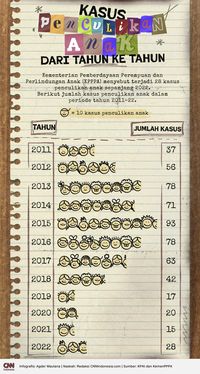 KASUS
PENCULIKAN
ANAK
DARI TAHUN KE TAHUN
Kementerian Pemberdayaan Perempuan dan
Perlindungan Anak (KPPPA) menyebut terjadi 28 kasus
penculikan anak sepanjang 2022.
Berikut jumlah kasus penculikan anak dalam
periode tahun 2011-22.
= 10 kasus penculikan anak
TAHUN JUMLAH KASUS
2011 37
2012 56
2013 78
2014 71
2015 93
2016 78
2017 63
2018 42
2019 17
2020 20
2021 15
2022 28
CNN Indonesia
Infografis: Agder Maulana | Naskah: Redaksi CNNIndonesia.com | Sumber: KPAI dan KemenPPPA